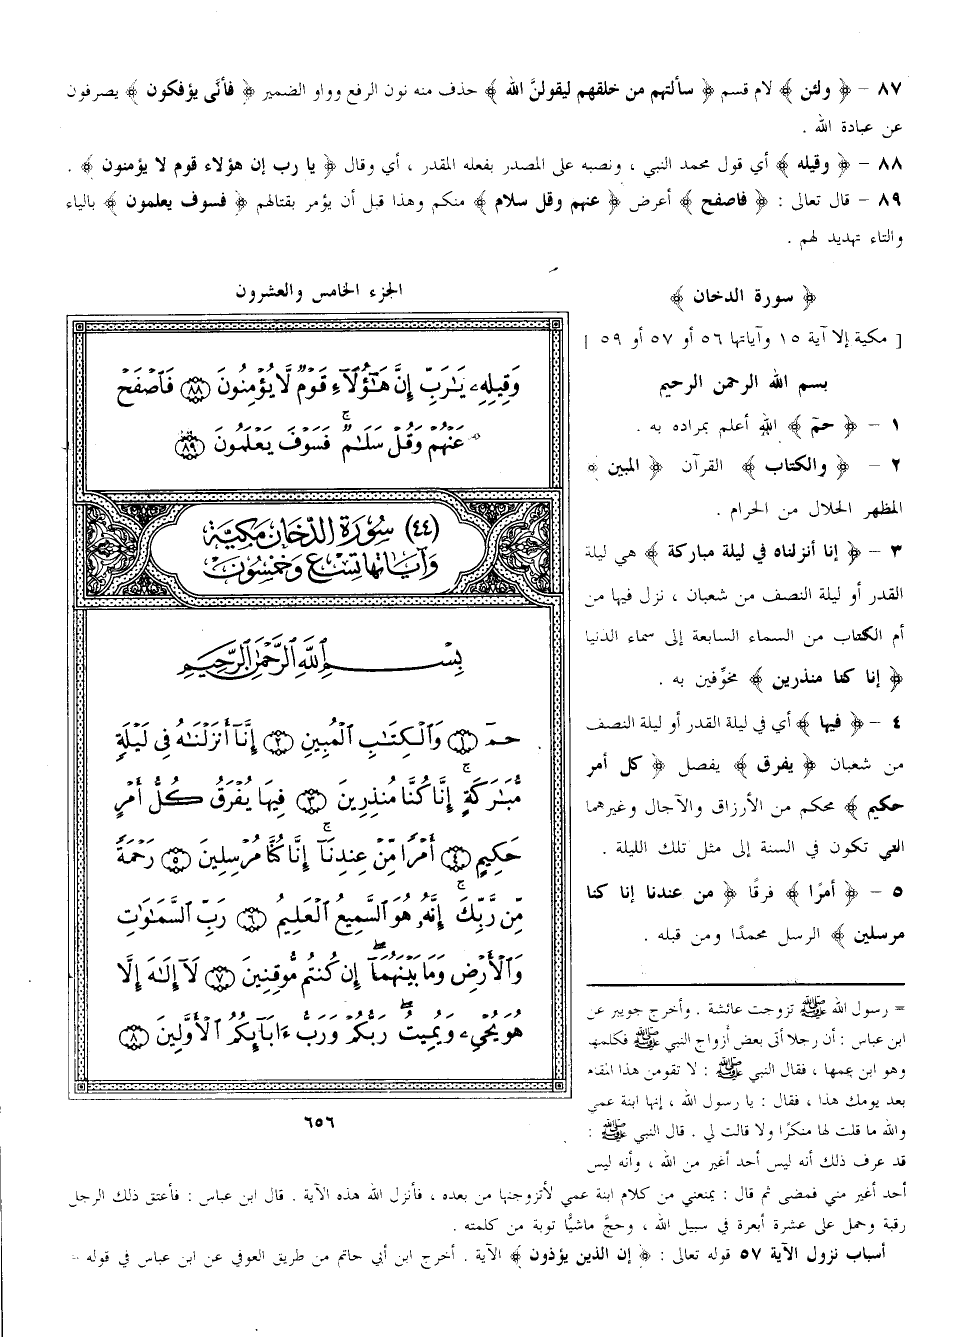 ٨٧ – ﴿ ولئن ﴾ لام قسم ﴿ سألتهم من خلقهم ليقولنَّ الله ﴾ حذف منه نون الرفع وواو الضمير ﴿ فأنَّى يؤفكون ﴾ يصرفون
عن عبادة الله .
٨٨ – ﴿ وقيله ﴾ أي قول محمد النبي ، ونصبه على المصدر بفعله المقدر ، أي وقال ﴿ يا رب إن هؤلاء قوم لا يؤمنون ﴾ .
٨٩ – قال تعالى : ﴿ فاصفح ﴾ أعرض ﴿ عنهم وقل سلام ﴾ منكم وهذا قبل أن يؤمر بقتالهم ﴿ فسوف يعلمون ﴾ بالياء
والتاء تهديد لهم .
﴿ سورة الدخان ﴾
[ مكية إلا آية ١٥ وآياتها ٥٦ أو ٥٧ أو ٥٩ ]
بسم الله الرحمن الرحيم
١ – ﴿ حمٓ ﴾ الله أعلم بمراده به .
٢ – ﴿ والكتاب ﴾ القرآن ﴿ المبين ﴾
المظهر الحلال من الحرام .
٣ – ﴿ إنا أنزلناه في ليلة مباركة ﴾ هي ليلة
القدر أو ليلة النصف من شعبان ، نزل فيها من
أم الكتاب من السماء السابعة إلى سماء الدنيا
﴿ إنا كنا منذرين ﴾ مخوِّفين به .
٤ – ﴿ فيها ﴾ أي في ليلة القدر أو ليلة النصف
من شعبان ﴿ يفرق ﴾ يفصل ﴿ كل أمر
حكيم ﴾ محكم من الأرزاق والآجال وغيرهما
التي تكون في السنة إلى مثل تلك الليلة .
٥ – ﴿ أمرًا ﴾ فرقًا ﴿ من عندنا إنا كنا
مرسلين ﴾ الرسل محمدًا ومن قبله .
الجزء الخامس والعشرون
وَقِيلِهِۦ يَـٰرَبِّ إِنَّ هَـٰٓؤُلَآءِ قَوْمٌ لَّا يُؤْمِنُونَ ٨٨ فَٱصْفَحْ
عَنْهُمْ وَقُلْ سَلَـٰمٌ ۚ فَسَوْفَ يَعْلَمُونَ ٨٩
(٤٤) سُورَة الدّخان مَكيَّة
وَآيَاتهَا تِسْع وَخَمْسُون
بِسْمِ ٱللَّهِ ٱلرَّحْمَـٰنِ ٱلرَّحِيمِ
حمٓ ١ وَٱلْكِتَـٰبِ ٱلْمُبِينِ ٢ إِنَّآ أَنزَلْنَـٰهُ فِى لَيْلَةٍ
مُّبَـٰرَكَةٍ ۚ إِنَّا كُنَّا مُنذِرِينَ ٣ فِيهَا يُفْرَقُ كُلُّ أَمْرٍ
حَكِيمٍ ٤ أَمْرًا مِّنْ عِندِنَآ ۚ إِنَّا كُنَّا مُرْسِلِينَ ٥ رَحْمَةً
مِّن رَّبِّكَ ۚ إِنَّهُۥ هُوَ ٱلسَّمِيعُ ٱلْعَلِيمُ ٦ رَبِّ ٱلسَّمَـٰوَٰتِ
وَٱلْأَرْضِ وَمَا بَيْنَهُمَآ ۖ إِن كُنتُم مُّوقِنِينَ ٧ لَآ إِلَـٰهَ إِلَّا
هُوَ يُحْىِۦ وَيُمِيتُ ۖ رَبُّكُمْ وَرَبُّ ءَابَآئِكُمُ ٱلْأَوَّلِينَ ٨
٦٥٦
= رسول الله ﷺ تزوجت عائشة . وأخرج جويبر عن
ابن عباس : أن رجلا أتى بعض أزواج النبي ﷺ فكلمها
وهو ابن عمها ، فقال النبي ﷺ : لا تقومن هذا المقام
بعد يومك هذا ، فقال : يا رسول الله ، إنها ابنة عمي
والله ما قلت لها منكرًا ولا قالت لي . قال النبي ﷺ :
قد عرف ذلك أنه ليس أحد أغير من الله ، وأنه ليس
أحد أغير مني فمضى ثم قال : يمنعني من كلام ابنة عمي لأتزوجنها من بعده ، فأنزل الله هذه الآية . قال ابن عباس : فأعتق ذلك الرجل
رقبة وحمل على عشرة أبعرة في سبيل الله ، وحجَّ ماشيًّا توبة من كلمته .
أسباب نزول الآية ٥٧ قوله تعالى : ﴿ إن الذين يؤذون ﴾ الآية . أخرج ابن أبي حاتم من طريق العوفي عن ابن عباس في قوله =